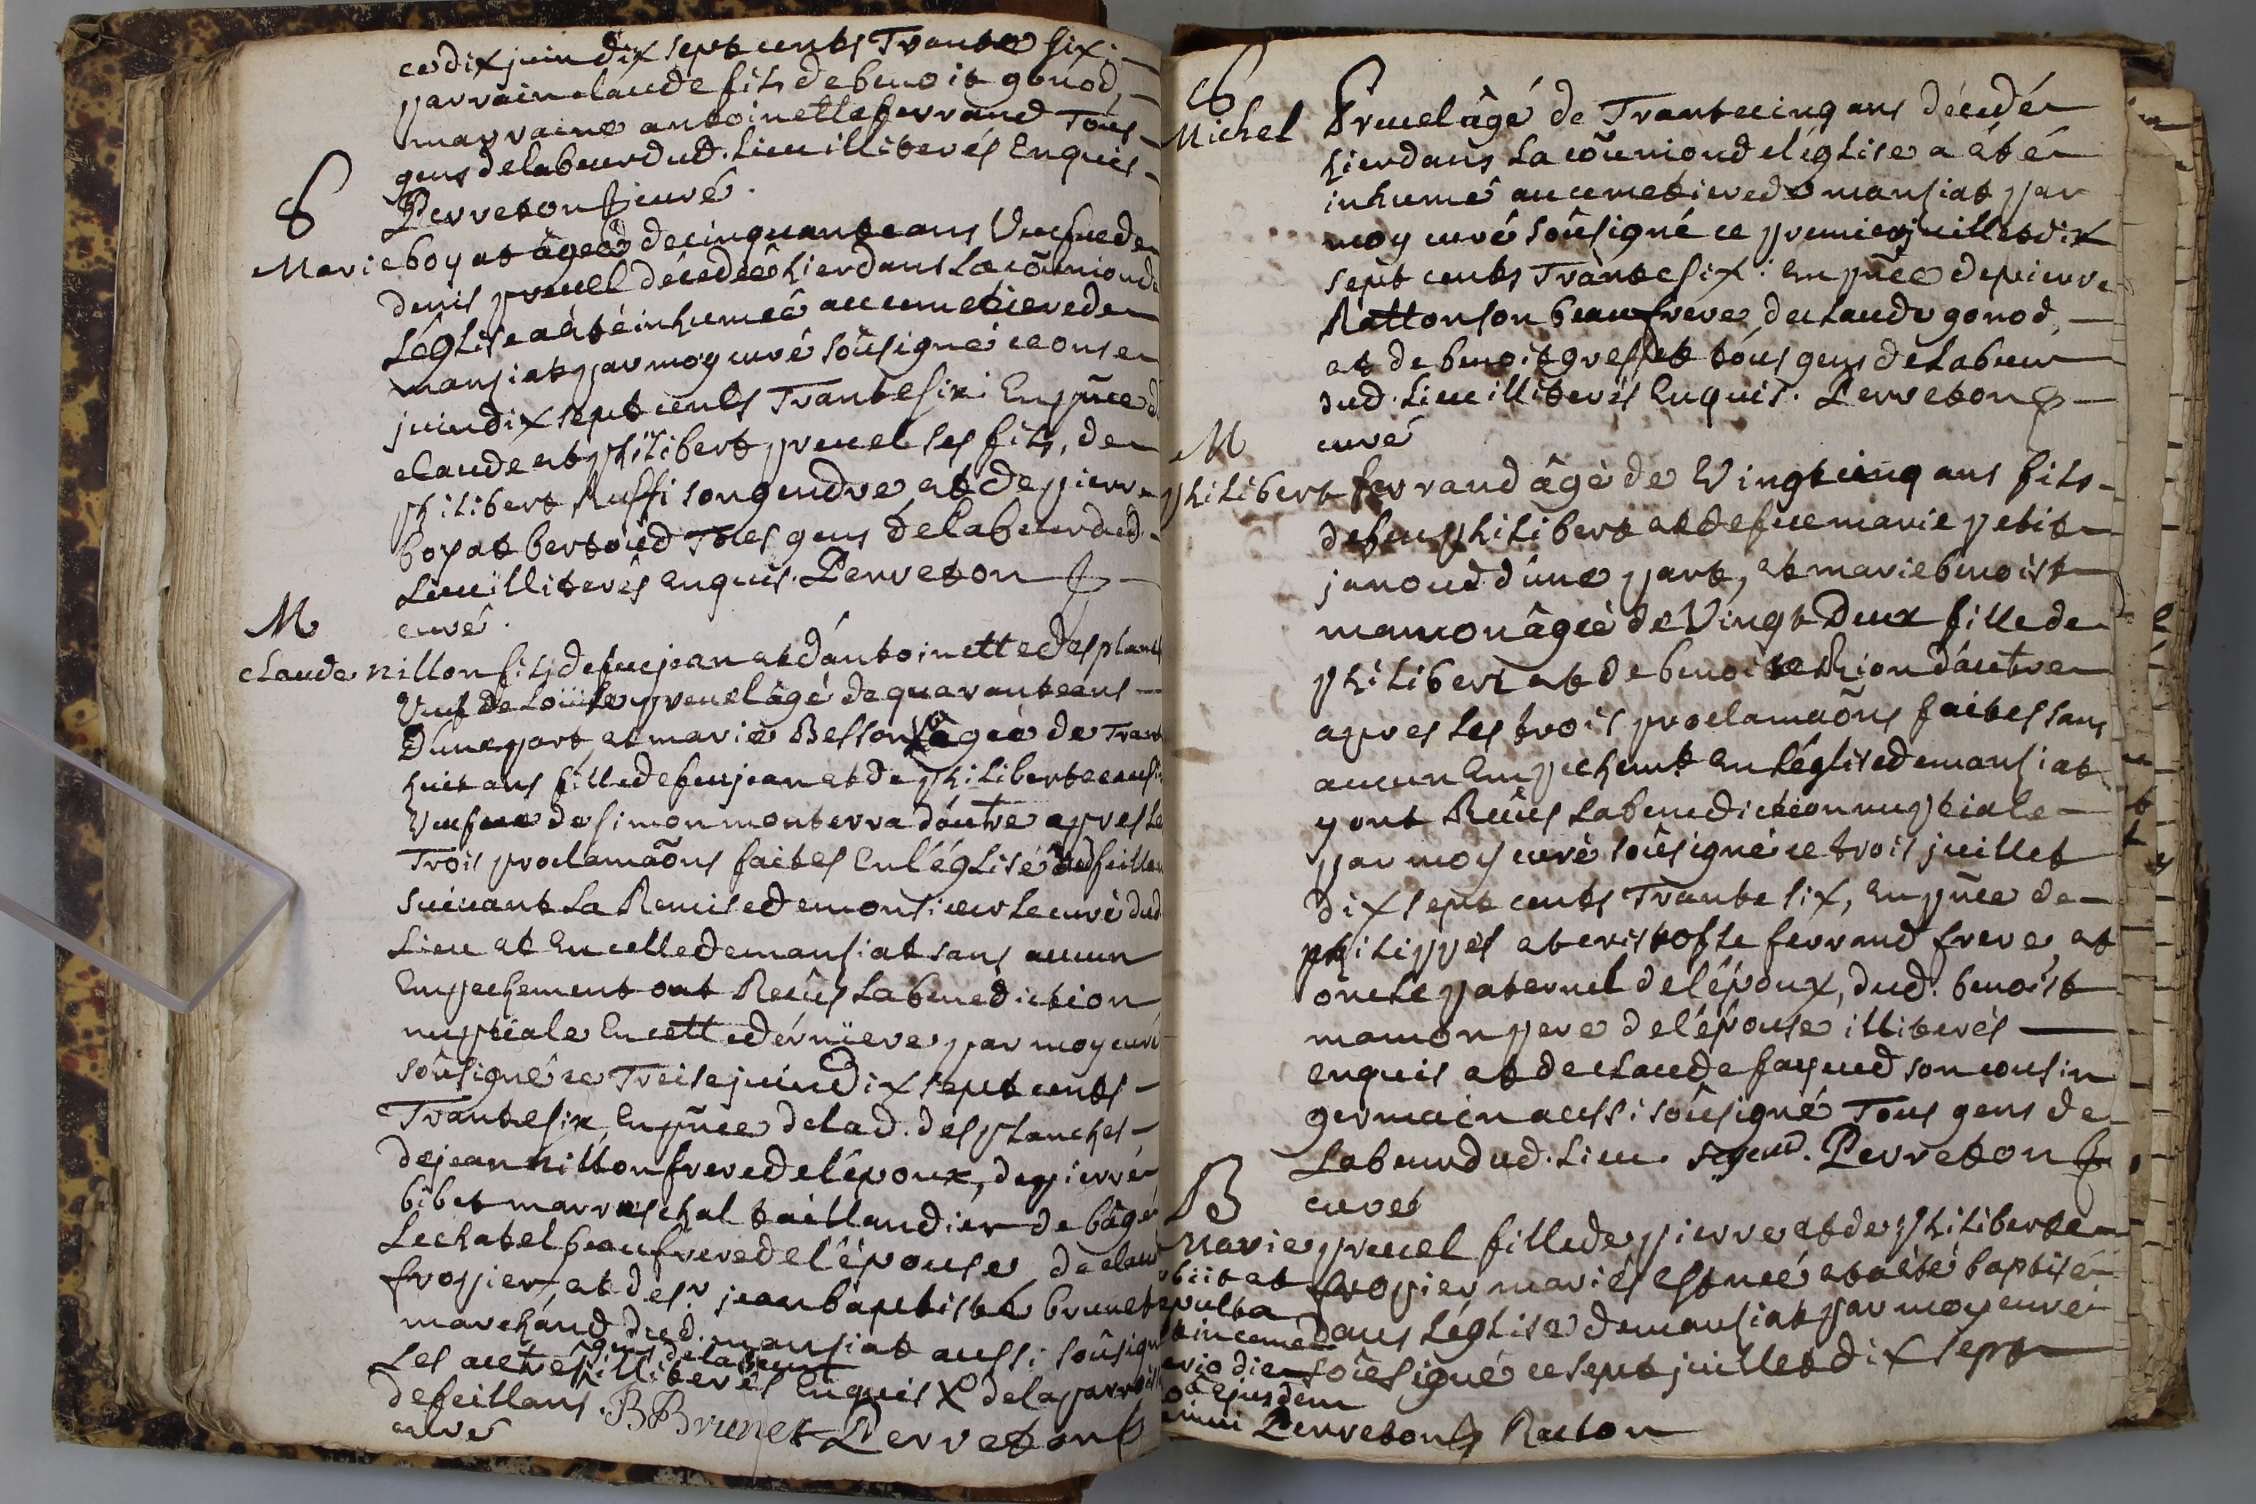 ce dix juin dix sept cents Trante six.
parrain claude fils de benoit gonod,
marraine antoinette ferrand Tous
gens de labeur dud. lieu illiterés Enquis
Perreton curé.
S
Marie boyat âgeé de cinquante ans Veufue de
denis pruel décedeé hier dans La coũnion de
L'église a été inhumeé au cemetiere de
mansiat par moy curé soûsigné ce onse
juin dix sept cents Trante six. En pñce de
claude et philibert pruel ses fils, de
philibert Ruffi son gendre et de pierre
boyat bertoud Tous gens de labeur dud.
Lieu illiterés enquis. Perreton
curé.
M
claude nillon fils de feu jean et d'antoinette desplanches
Veuf de Loüise pruel âgé de quarante ans
D'une part, et marie Besson âgeé de Trante
huit ans fille de feu jean et de philiberte
Veufue de simon monterra d'autre apres Les
Trois proclamaõns faites En l'église de feillans
suiuant La Remise de monsieur Le curé dud.
Lieu et En celle de mansiat sans aucun
Empechement ont Reçûs La benediction
nuptiale En cette derniere par moy curé
soûsigné ce Treise juin dix sept cents
Trante six, En pñce de lad. desplanches
de jean nillon frere de l'époux, de pierre
bibet marreschal taillandier de bâgé
Le chatel beaufrere de l'épouse de claude
fropier, et de sr. jean baptiste brunet
marchand dud. mansiat aussi soûsigné
gens de labeur
Les autres illiterés Enquis X de la parroisse
de feillans. B Brunet Perreton
curé
S
Michel Pruel âgé de Trante cinq ans décedé
hier dans La coũnion de l'église a été
inhumé au cemetiere de mansiat par
moy curé soûsigné ce premier juillet dix
sept cents Trante six. en pñce de pierre
Ratton son beaufrere, de claude gonod,
et de benoit gresset tous gens de labeur
dud. Lieu illiterés Enquis. Perreton
curé
M
philibert ferrand âgé de Vingt cinq ans fils
de feu philibert et de feue marie petit
janoud d'une part, et marie benoist
mamon âgeé de Vingt Deux fille de
philibert et de benoite Rion d'autre
apres Les trois proclamaõns faites sans
aucun Empechemt. En l'église de mansiat
y ont Reçûs La benediction nuptiale
par moy curé soûsigné ce trois juillet
dix sept cents Trante six, En pñce de
philippes et cristofle ferrand frere et
oncle paternel de l'époux, dud. benoist
mamon pere de l'épouse illiterés
enquis et de claude fayeud son cousin
germain aussi soûsigné Tous gens de
Labeur dud. Lieu. Perreton
curé
B
Marie pruel fille de pierre et de philiberte
fropier mariés est neé et a été baptisé
dans L'église de mansiat par moy curé
soûsigné ce sept juillet dix sept
obiit et
sepulta
in ceme
die
ejusdem
anni Perreton Raton